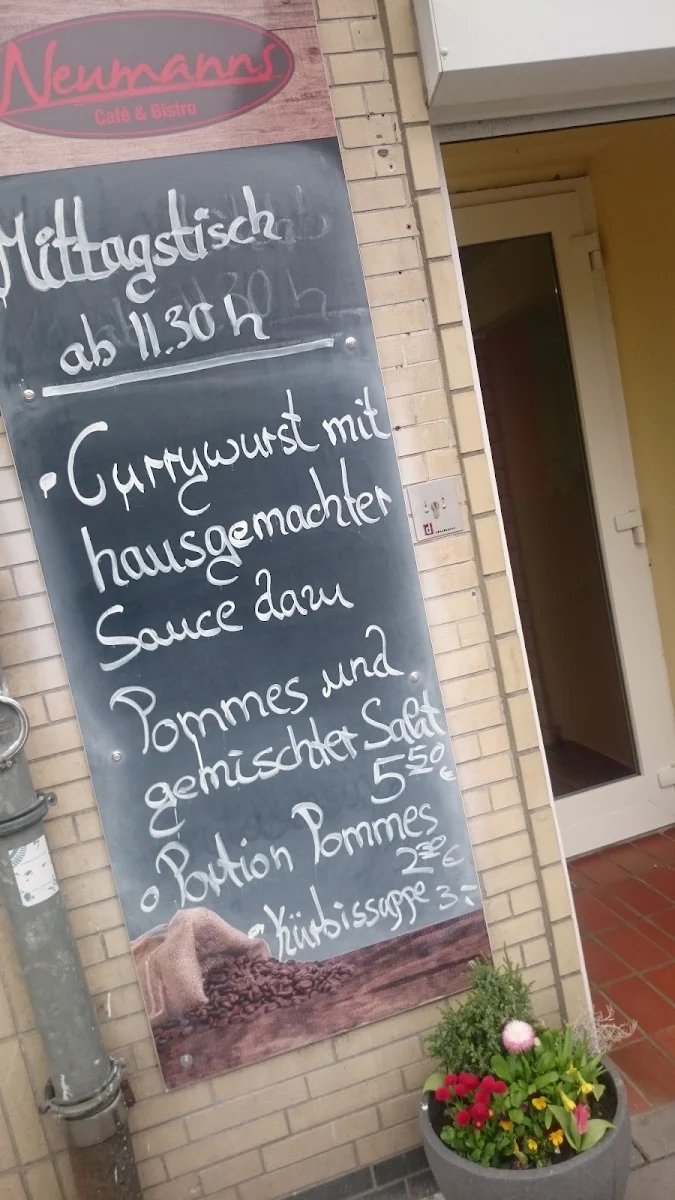 Neumanns
Cafè & Bistro
Mittagstisch
ab 11.30 h
Currywurst mit
hausgemachter
Sauce dazu
Pommes und
gemischter Salat
5 50 €
Portion Pommes
€
Kürbissuppe 3,-